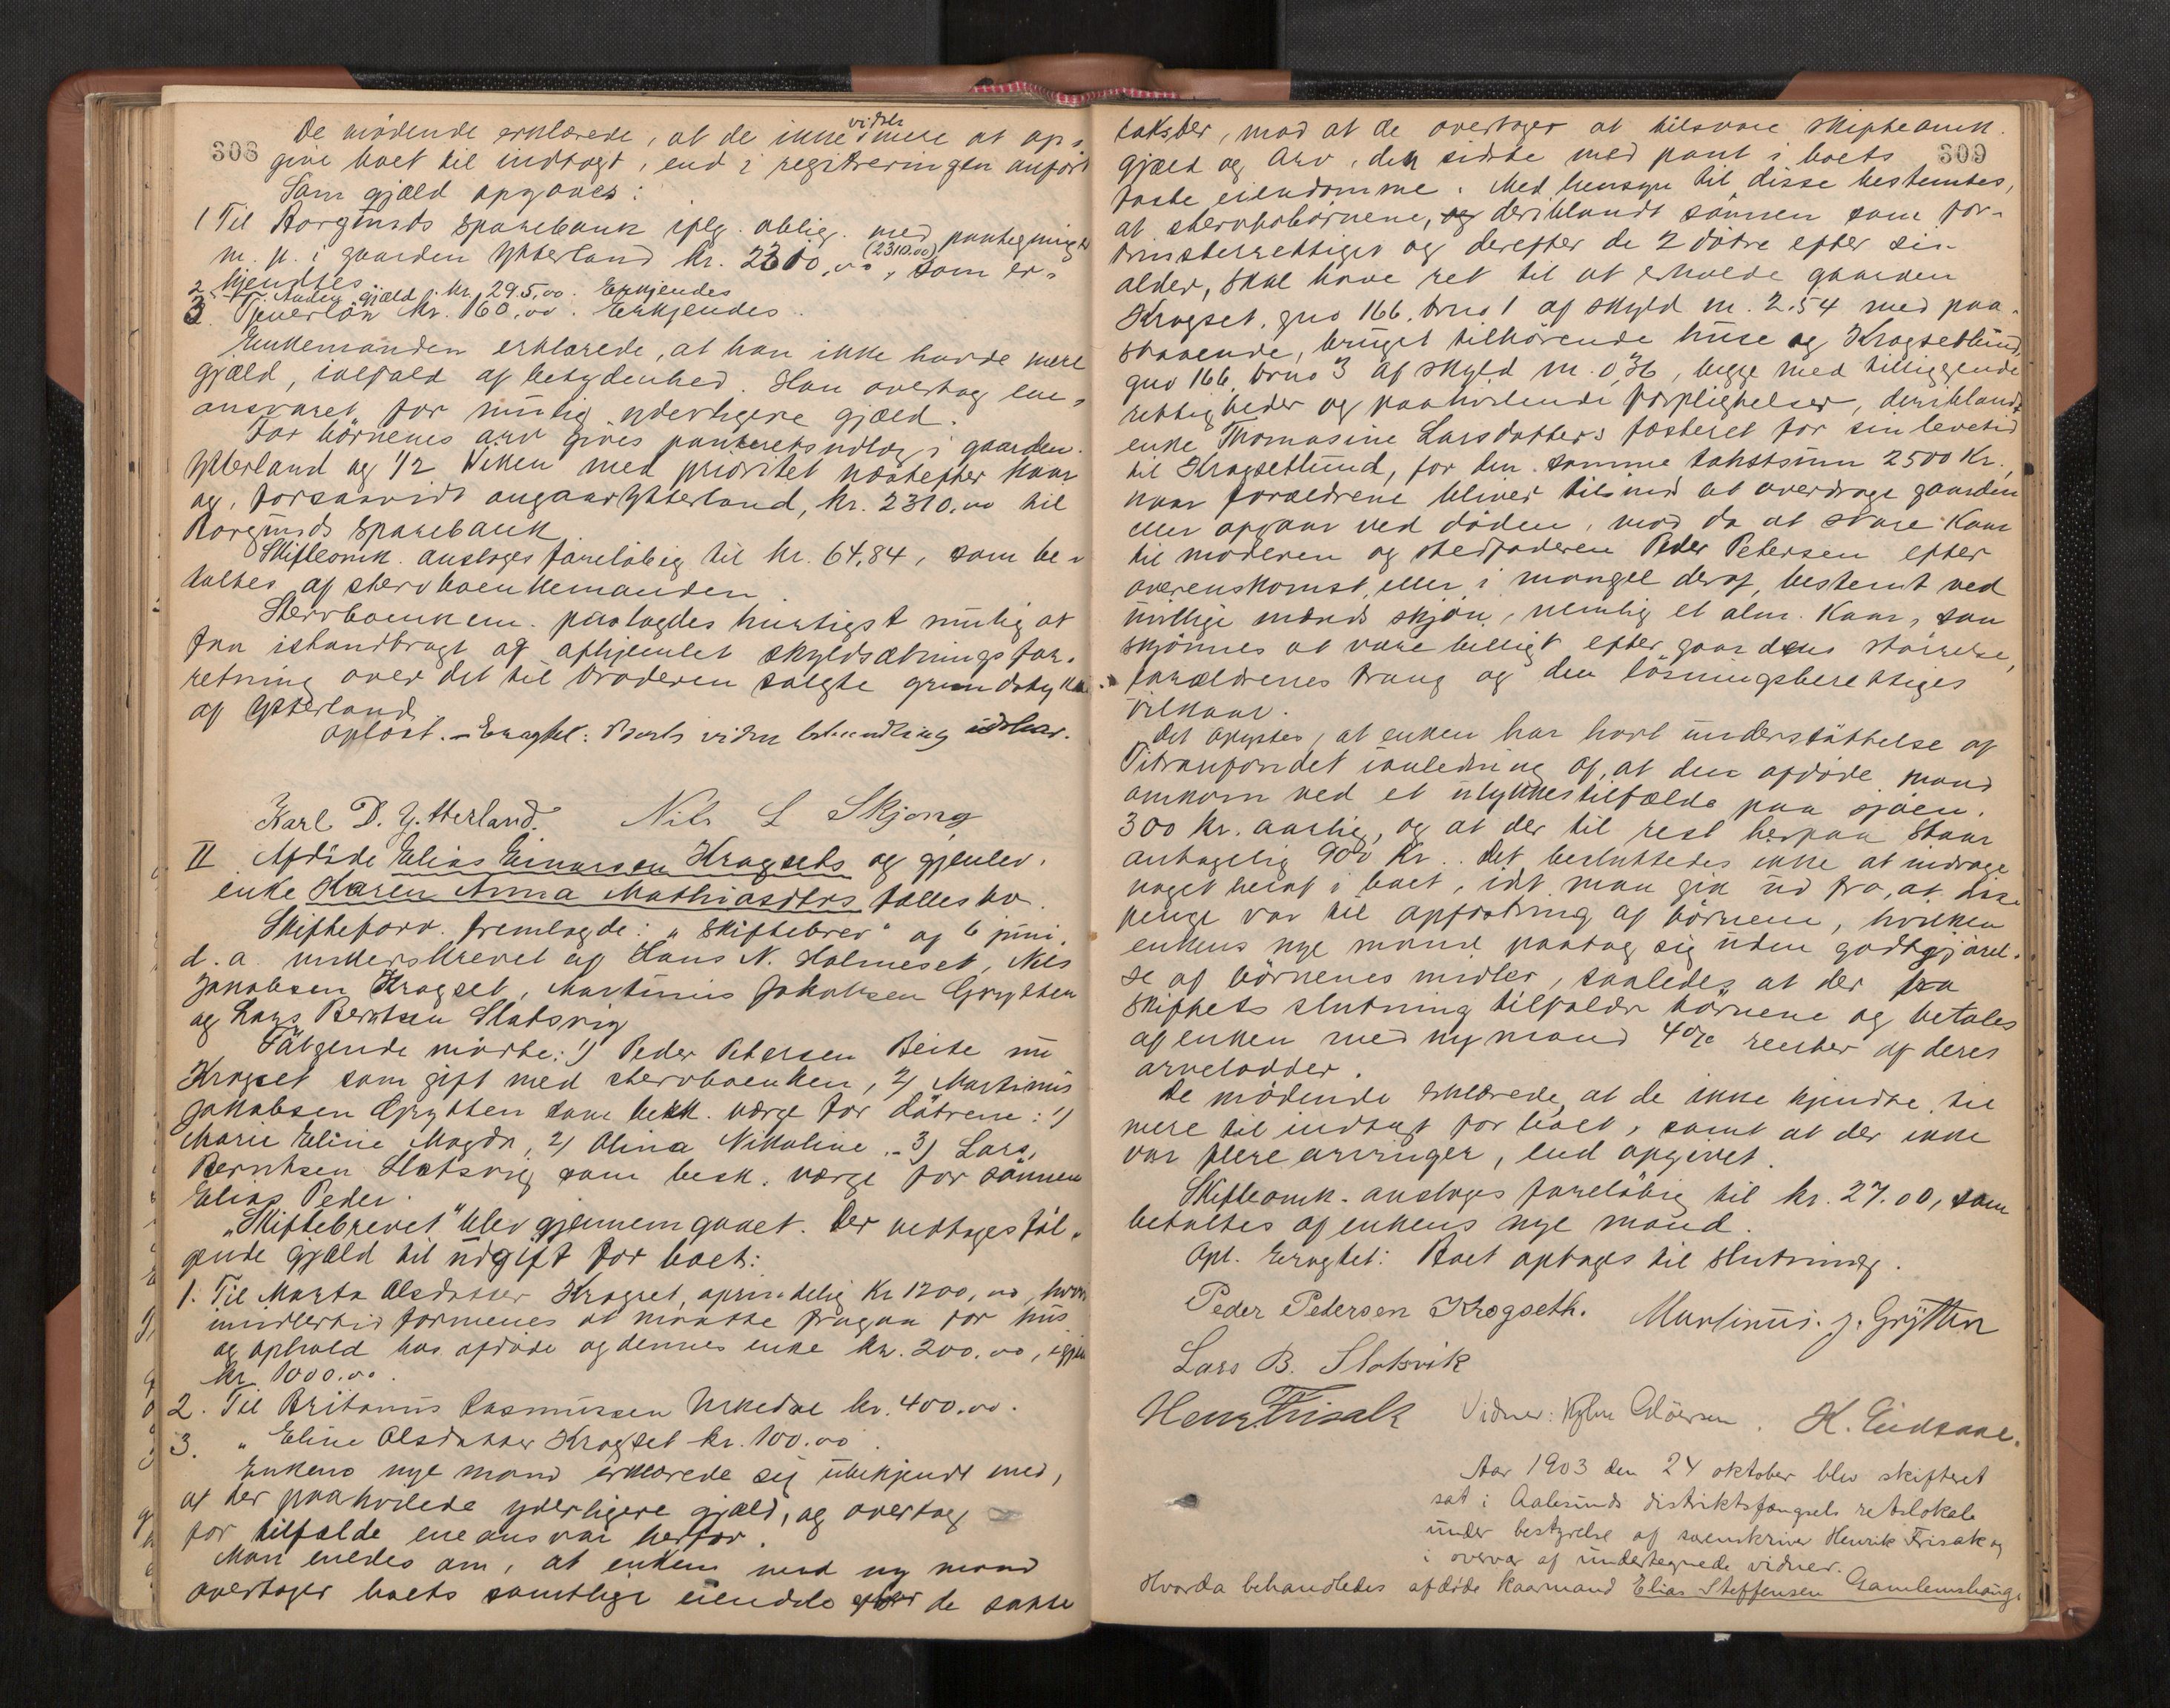 308
De mødende erklærede, at de ikke vidste mere at op-
give boet til indtægt, end i registreringen anført
Som gjæld opgaves:
1 Til Borgunds Sparebank iflg. oblig. med paategning
m. p. i gaarden Ytterland kr. 2310,00 (2310.00), som er-
kjendtes
2 Anden gjæld kr. 295,00. Erkjendes
3. Tjenerløn kr. 160,00. Erkjendes.
Enkemanden erklærede, at han ikke havde mere
gjæld, ialfald af betydenhed. Han overtog ene-
ansvaret for mulig yderligere gjæld.
For børnenes arv gives panteretsudlæg i gaarden
Ytterland og 1/2 Viken med prioritet næstefter kaar
og, forsaavidt angaar Ytterland, kr. 2310,00 til
Borgunds Sparebank
Skifteomk. ansloges foreløbig til kr. 64,84, som be-
taltes af stervboenkemanden.
Stervboenkem. paalagdes hurtigst mulig at
faa istandbragt og afhjemlet skyldsætningsfor-
retning over det til broderen solgte grundstykke
af Ytterland.
Oplæst. - Eragtet: Boets viden behandling udstaar.
Karl D. Ytterland. Nils L Skjong
II Afdøde Elias Einarsen Krogsets og gjenlev.
enke Karen Anna Mathiasdtrs fælles bo.
Skifteforv. fremlagde: "Skiftebrev" af 6 juni
d. a. underskrevet af Hans N. Holmeset, Nils
Jakobsen Krogset, Martinus Jakobsen Grytten
og Lars Berntsen Slatsvig
Følgende mødte: 1) Peder Petersen Beite nu
Krogset som gift med stervboenken, 2) Martinus
Jakobsen Grytten som besk. værge for døtrene: 1)
Marie Eline Magda, 2) Olina Nikoline. - 3) Lars
Berntsen Slatsvig som besk. værge for sønnen
Elias Peder.
"Skiftebrevet" blev gjennemgaaet. Der vedtoges føl-
gende gjæld til udgift for boet:
1. Til Marta Olsdatter Krogset, oprindelig Kr 1200,00, hvori
imidlertid formenes at maatte fragaa for hus
og ophold hos afdøde og dennes enke kr. 200.00, igjen
kr 1000.00.
2. Til Britanus Rasmussen Urkedal kr. 400.00.
3. " Eline Olsdatter Krogset kr. 100.00.
Enkens nye mand erklærede sig ubekjendt med,
at der paahvilede yderligere gjæld, og overtog
for tilfælde eneansvar herfor.
Man enedes om, at enken med ny mand
overtager boets samtlige eiendele efter de satte
309
takster, mod at de overtager at tilsvare skifteomk.
gjæld og Arv, den sidste med pant i boets
faste eiendomme. Med hensyn til disse bestemtes,
at stervbobørnene, og deriblandt sønnen som for-
trinsberettiget og derefter de 2 døtre efter sin
alder, skal have ret til at erholde gaarden
Krogset, gno 166, brno 1 af skyld m. 2.54 med paa-
staaende, bruget tilhørende huse og Krogsetlund,
gno 166 brno 3 af skyld m. 0,36, begge med tilliggende
rettigheder og paahvilende forpligtelser, deriblandt
enke Thomasine Larsdatters fæsteret for sin levetid
til Krogsetlund, for den samme takstsum 2500 Kr.,
naar forældrene bliver tilsinds at overdrage gaarden
eller afgaar ved døden, mod da at svare Kaar
til moderen og stedfaderen Peder Petersen efter
overenskomst, eller i mangel deraf, bestemt ved
uvillige mænds skjøn, nemlig et alm. Kaar, som
skjønnes at være billigt efter gaardens størrelse,
forældrenes trang og den løsningsberettiges
vilkaar.
Det oplystes, at enken har havt understøttelse af
Titranfondet i anledning af, at den afdøde mand
omkom ved et ulykkestilfælde paa sjøen.
300 kr. aarlig, og at der til rest herpaa staar
antagelig 900 Kr.. Det besluttedes ikke at inddrage
noget heraf i boet, idet man gik ud fra, at disse
penge var til opfostring af børnene, hvilken
enkens nye mand paatog sig uden godtgjørel-
se af børnenes midler, saaledes at der fra
skiftets slutning tilfalder børnene og betales
af enken med ny mand 4% renter af deres
arvelodder.
De mødende erklærede, at de ikke kjendte til
mere til indtægt for boet, samt at der ikke
var flere arvinger, end opgivet.
Skifteomk. ansloges foreløbig til kr. 27.00, som
betaltes af enkens nye mand.
Opl. Eragtet: Boet optages til Slutning.
Peder Petersen Krogseth. Martinus. J. Grÿtten
Lars B. Slatsvik
Henr Frisak Vidner: K. Eidsaae.
Aar 1903 den 24 oktober blev skifteret
sat i Aalesunds distriktsfængsels retslokale
under bestyrelse af sorenskriver Henrik Frisak og
i overvær af undertegnede vidner.
Hvorda behandledes afdøde kaarmand Elias Steffensen Gamlemshaug-